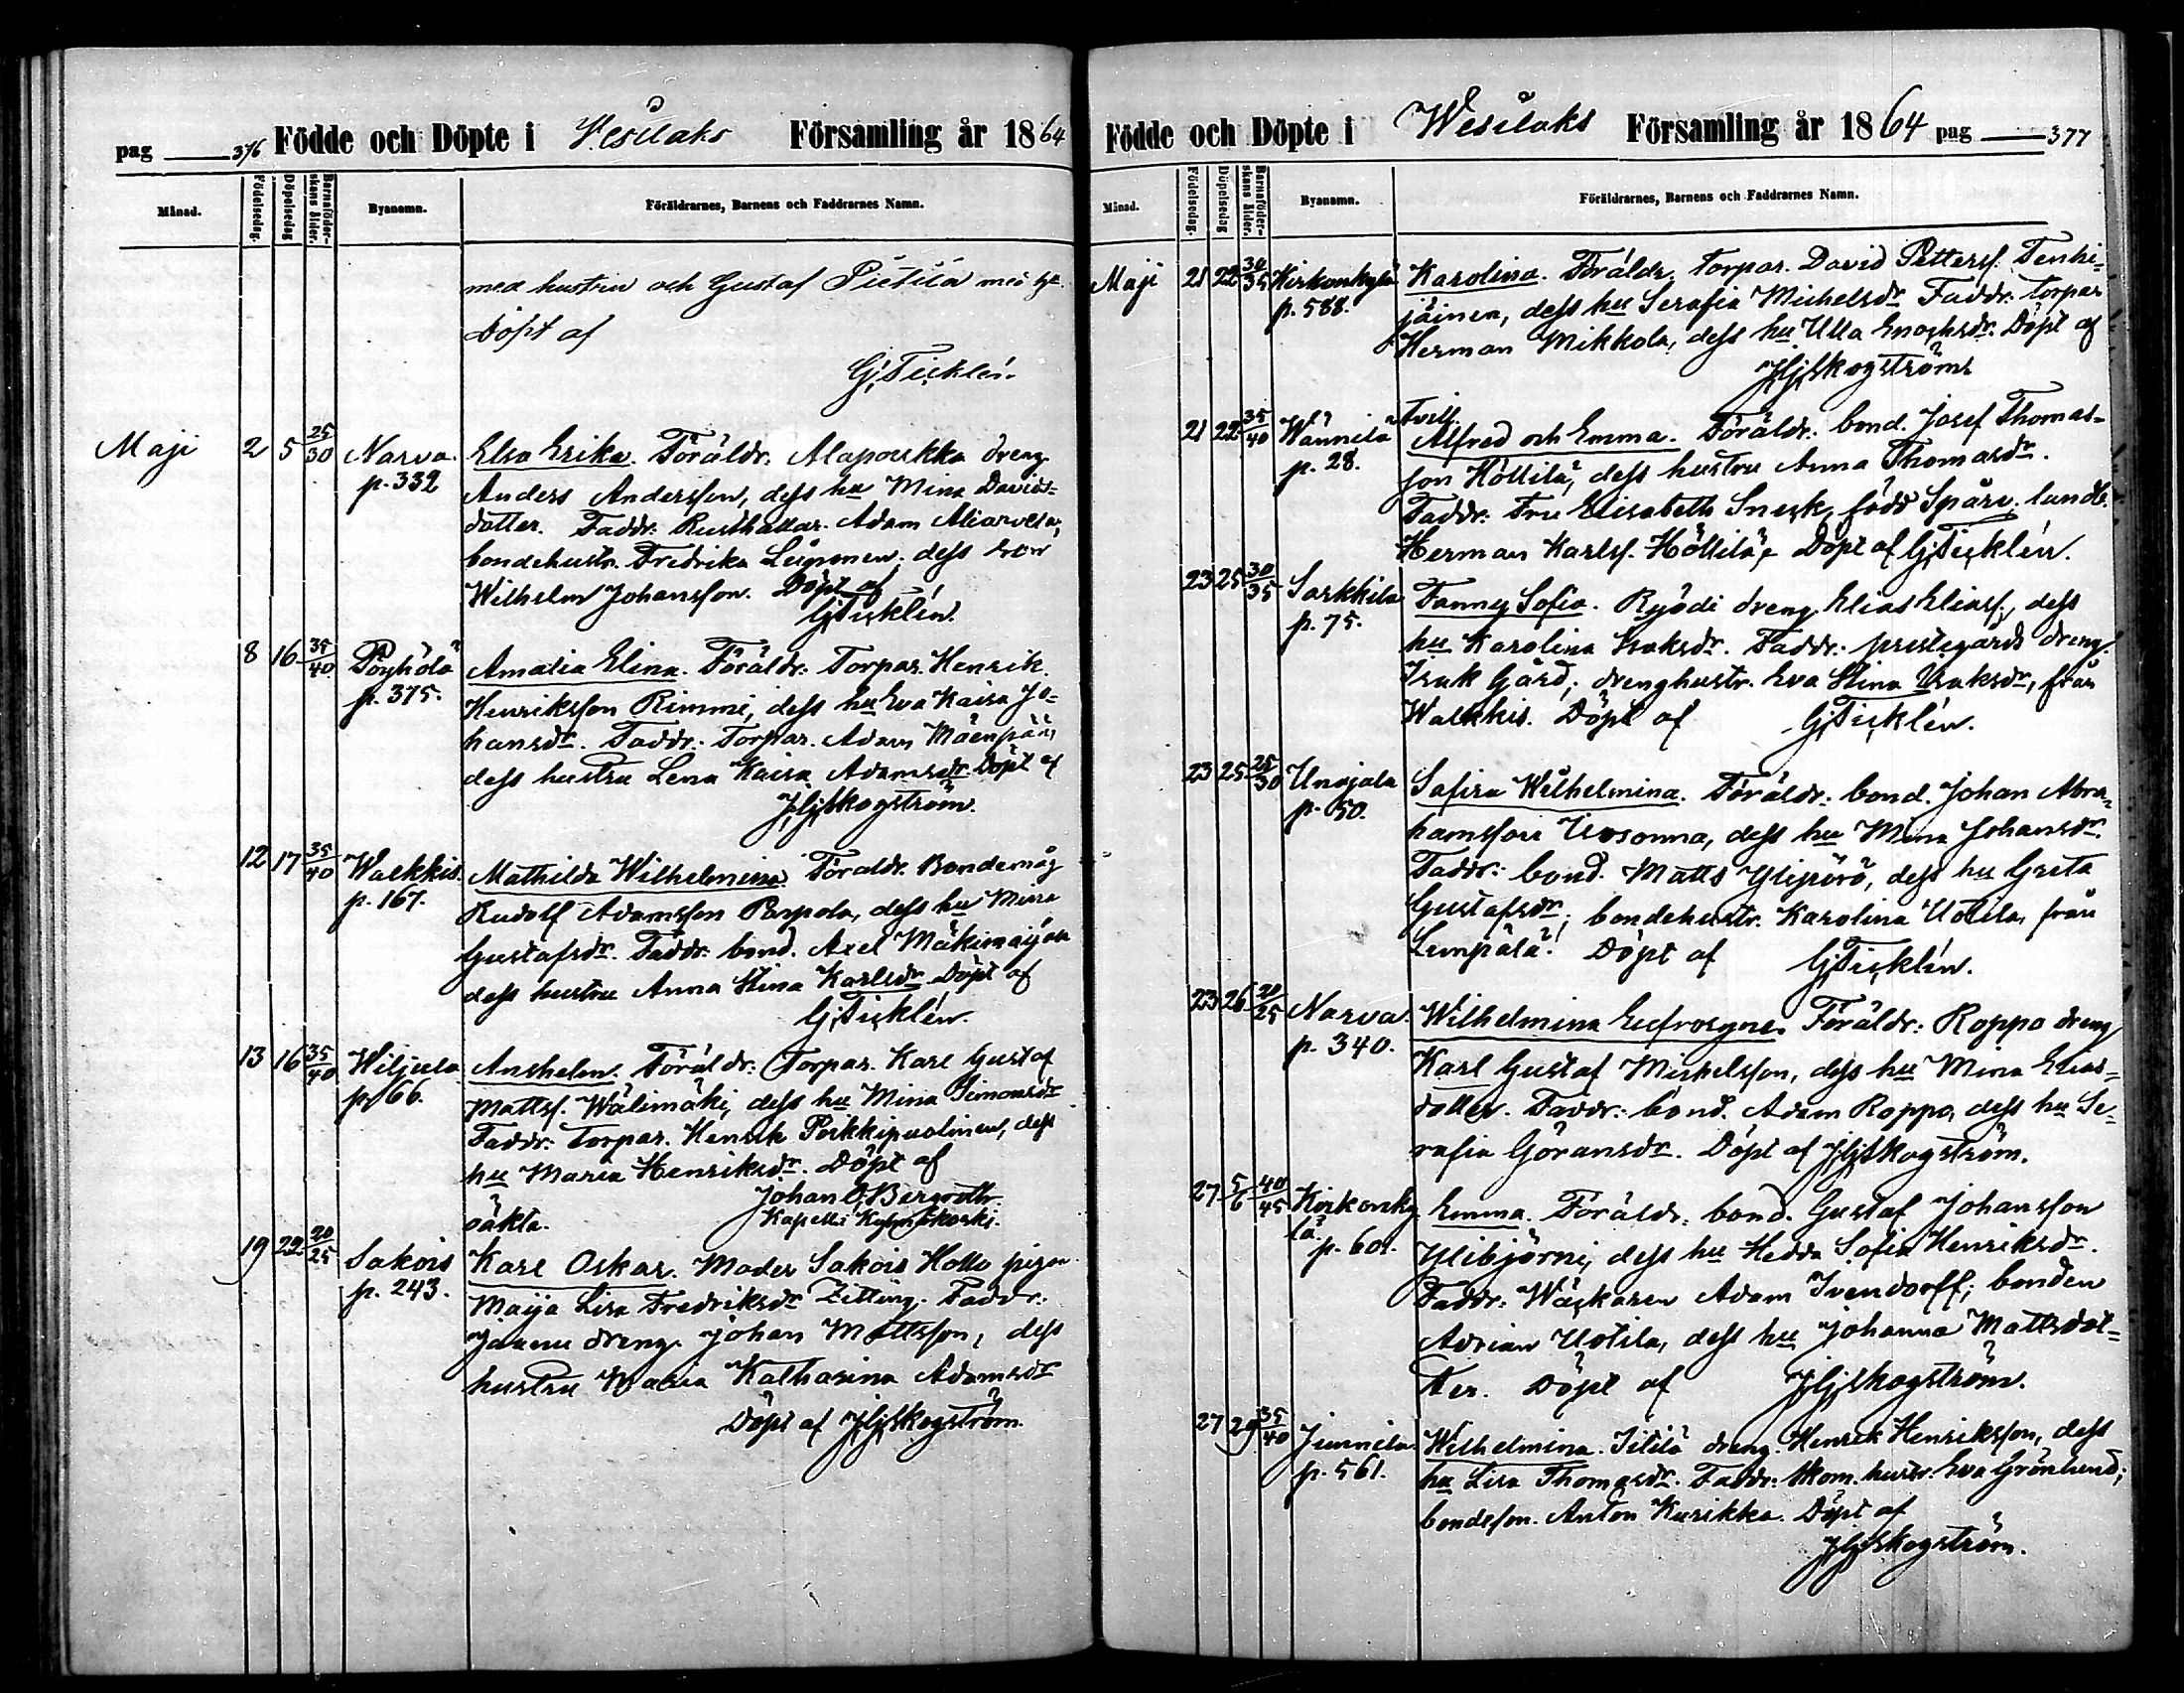 pag 376 Födde och Döpte i Vesilaks Församling år 1864
Månad. Födelsedag. Döpelsedag Barnaföderskans ålder. Byanamn. Föräldrarnes, Barnens och Faddrarnes Namn.
med hustru och Gustaf Pietilä
Döpt af
G, Ticklén.
Maji 2 5 25/30 Narva. Elsa Erika. Föräldr: Alapourkka dreng
p. 332 Anders Andersson, dess hu Mina Davids-
dotter. Faddr: Rusthållar. Adam
bondehustr. Fredrika dess son
Wilhelm Johansson. Döpt af
G, Ticklén.
8 16 35/40 Pöyhölä Amalia Elina. Föräldr: Torpar. Henrik
p. 375. Henriksson Rimmi, dess hu Eva Kaisa Jo-
hansdr. Faddr: Torpar. Adam Mäenpää,
dess hustru Lena Kaisa Adamsdr. Döpt af
Skogström.
12 17 35/40 Walkkis. Mathilda Wilhelmina. Föräldr. Bondemåg
p. 167. Rudolf Adamsson Parpola, dess hu Mina
Gustafsdr. Faddr: bond. Axel
dess hustru Anna Stina Karlsdr Döpt af
G, Ticklén.
13 16 35/40 Wiljula Anshelm. Föräldr: Torpar. Karl Gustaf
p. 66. Mattss. Wälimäki, dess hu Mina Simonsdr
Faddr: Torpar. Henrik Porkkipuolinen, dess
hu Maria Henriksdr. Döpt af
Johan O, Bergroth
oäkta. Kapell:
19 22 20/25 Sakois Karl Oskar. Moder Sakois Hollo pigan
p. 243. Maija Lisa Fredriksdr Zitting. Faddr:
dreng. Johan Mattsson, dess
hustru Maria Katharina Adamsdr
Döpt af Skogström.
Födde och Döpte i Wesilaks Församling år 1864 pag 377
Månad. Födelsedag. Döpelsedag Barnaföderskans ålder. Byanamn. Föräldrarnes, Barnens och Faddrarnes Namn.
Maji 21 22 30/35 Kirkonkylä Karolina. Föräldr. torpar. David Petterss. Tenhi-
p. 588. jäinen, dess hu Serafia Michelsdr Faddr: Torpar
Herman Mikkola, dess hu Ulla Enochsdr. Döpt af
Skogström
Tvill.
21 22 35/40 Wännilä Alfred och Emma. Föräldr: bond. Josef Thomas-
p. 28. son Höllilä, dess hustru Anna Thomasdr.
Faddr: Fru Elisabeth Sneck, född Spåre; landb.
Herman Karlss. Höllilä, Döpt af G, Ticklén.
23 25 30/35 Sarkkila Fanny Sofia. Ryödi dreng. Elias Eliass., dess
p. 75. hu Karolina Isaksdr. Faddr: prestegårds dreng.
Isak Gård; drenghustr. Eva Stina Isaksdr, från
Walkkis. Döpt af G, Ticklén.
23 25 25/30 Unajala Safira Wilhelmina. Föräldr: bond. Johan Abra-
p. 50. hamsson Isosonna, dess hu Mina Johansdr.
Faddr: bond. Matts dess hu Greta
Gustafsdr; bondehustr. Karolina Uotila, från
Lempälä. Döpt af G, Ticklén.
23 26 20/25 Narva. Wilhelmina Eufrosyne. Föräldr: Roppo dreng
p. 340. Karl Gustaf Michelsson, dess hu Mina Elias-
dotter. Faddr: bond. Adam Roppo, dess hu Se-
rafia Göransdr. Döpt af Skogström.
27 5/6 40/45 Kirkonky Emma. Föräldr: bond. Gustaf Johansson
lä. p. 601. Ylibjörni, dess hu Hedda Sofia Henriksdr.
Faddr: Wäckaren Adam Ivendorff; bonden
Adrian Uotila, dess hu Johanna Mattsdot-
ter. Döpt af Skogström.
27 29 35/40 Junnila Wilhelmina. Iitilä dreng. Henrik Henriksson, dess
p. 561. hu Lisa Thomasdr. Faddr: Skom. hustr. Eva Grönlund;
bondeson. Anton Kurikka. Döpt af
Skogström.